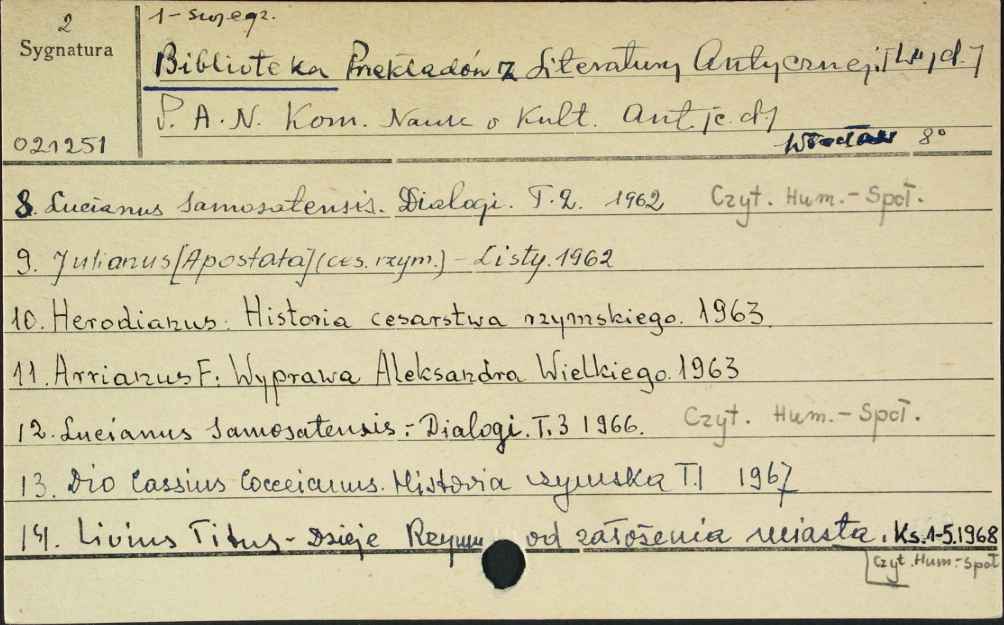 2
1-szy egz.
Sygnatura
Biblioteka Przekładów z Literatury Antycznej. [Wyd.]
P.A.N. Kom. Nauk o Kult. Ant[c.d.]
021251
Wrocław 8°
8. Lucianus Samosatensis. Dialogi. T.2. 1962 Czyt. Hum.-Społ.
9. Julianus [Apostata] (ces. rzym.) - Listy. 1962
10. Herodianus: Historia cesarstwa rzymskiego. 1963.
11. Arrianus F: Wyprawa Aleksandra Wielkiego. 1963
12. Lucianus Samosatensis:- Dialogi. T.3 1966. Czyt. Hum.-Społ.
13. Dio Cassius Cocceianus. Historia rzymska T.I 1967
14. Livius Titus - Dzieje Rzymu od założenia miasta. Ks.1-5.1968
Czyt.Hum.-Społ